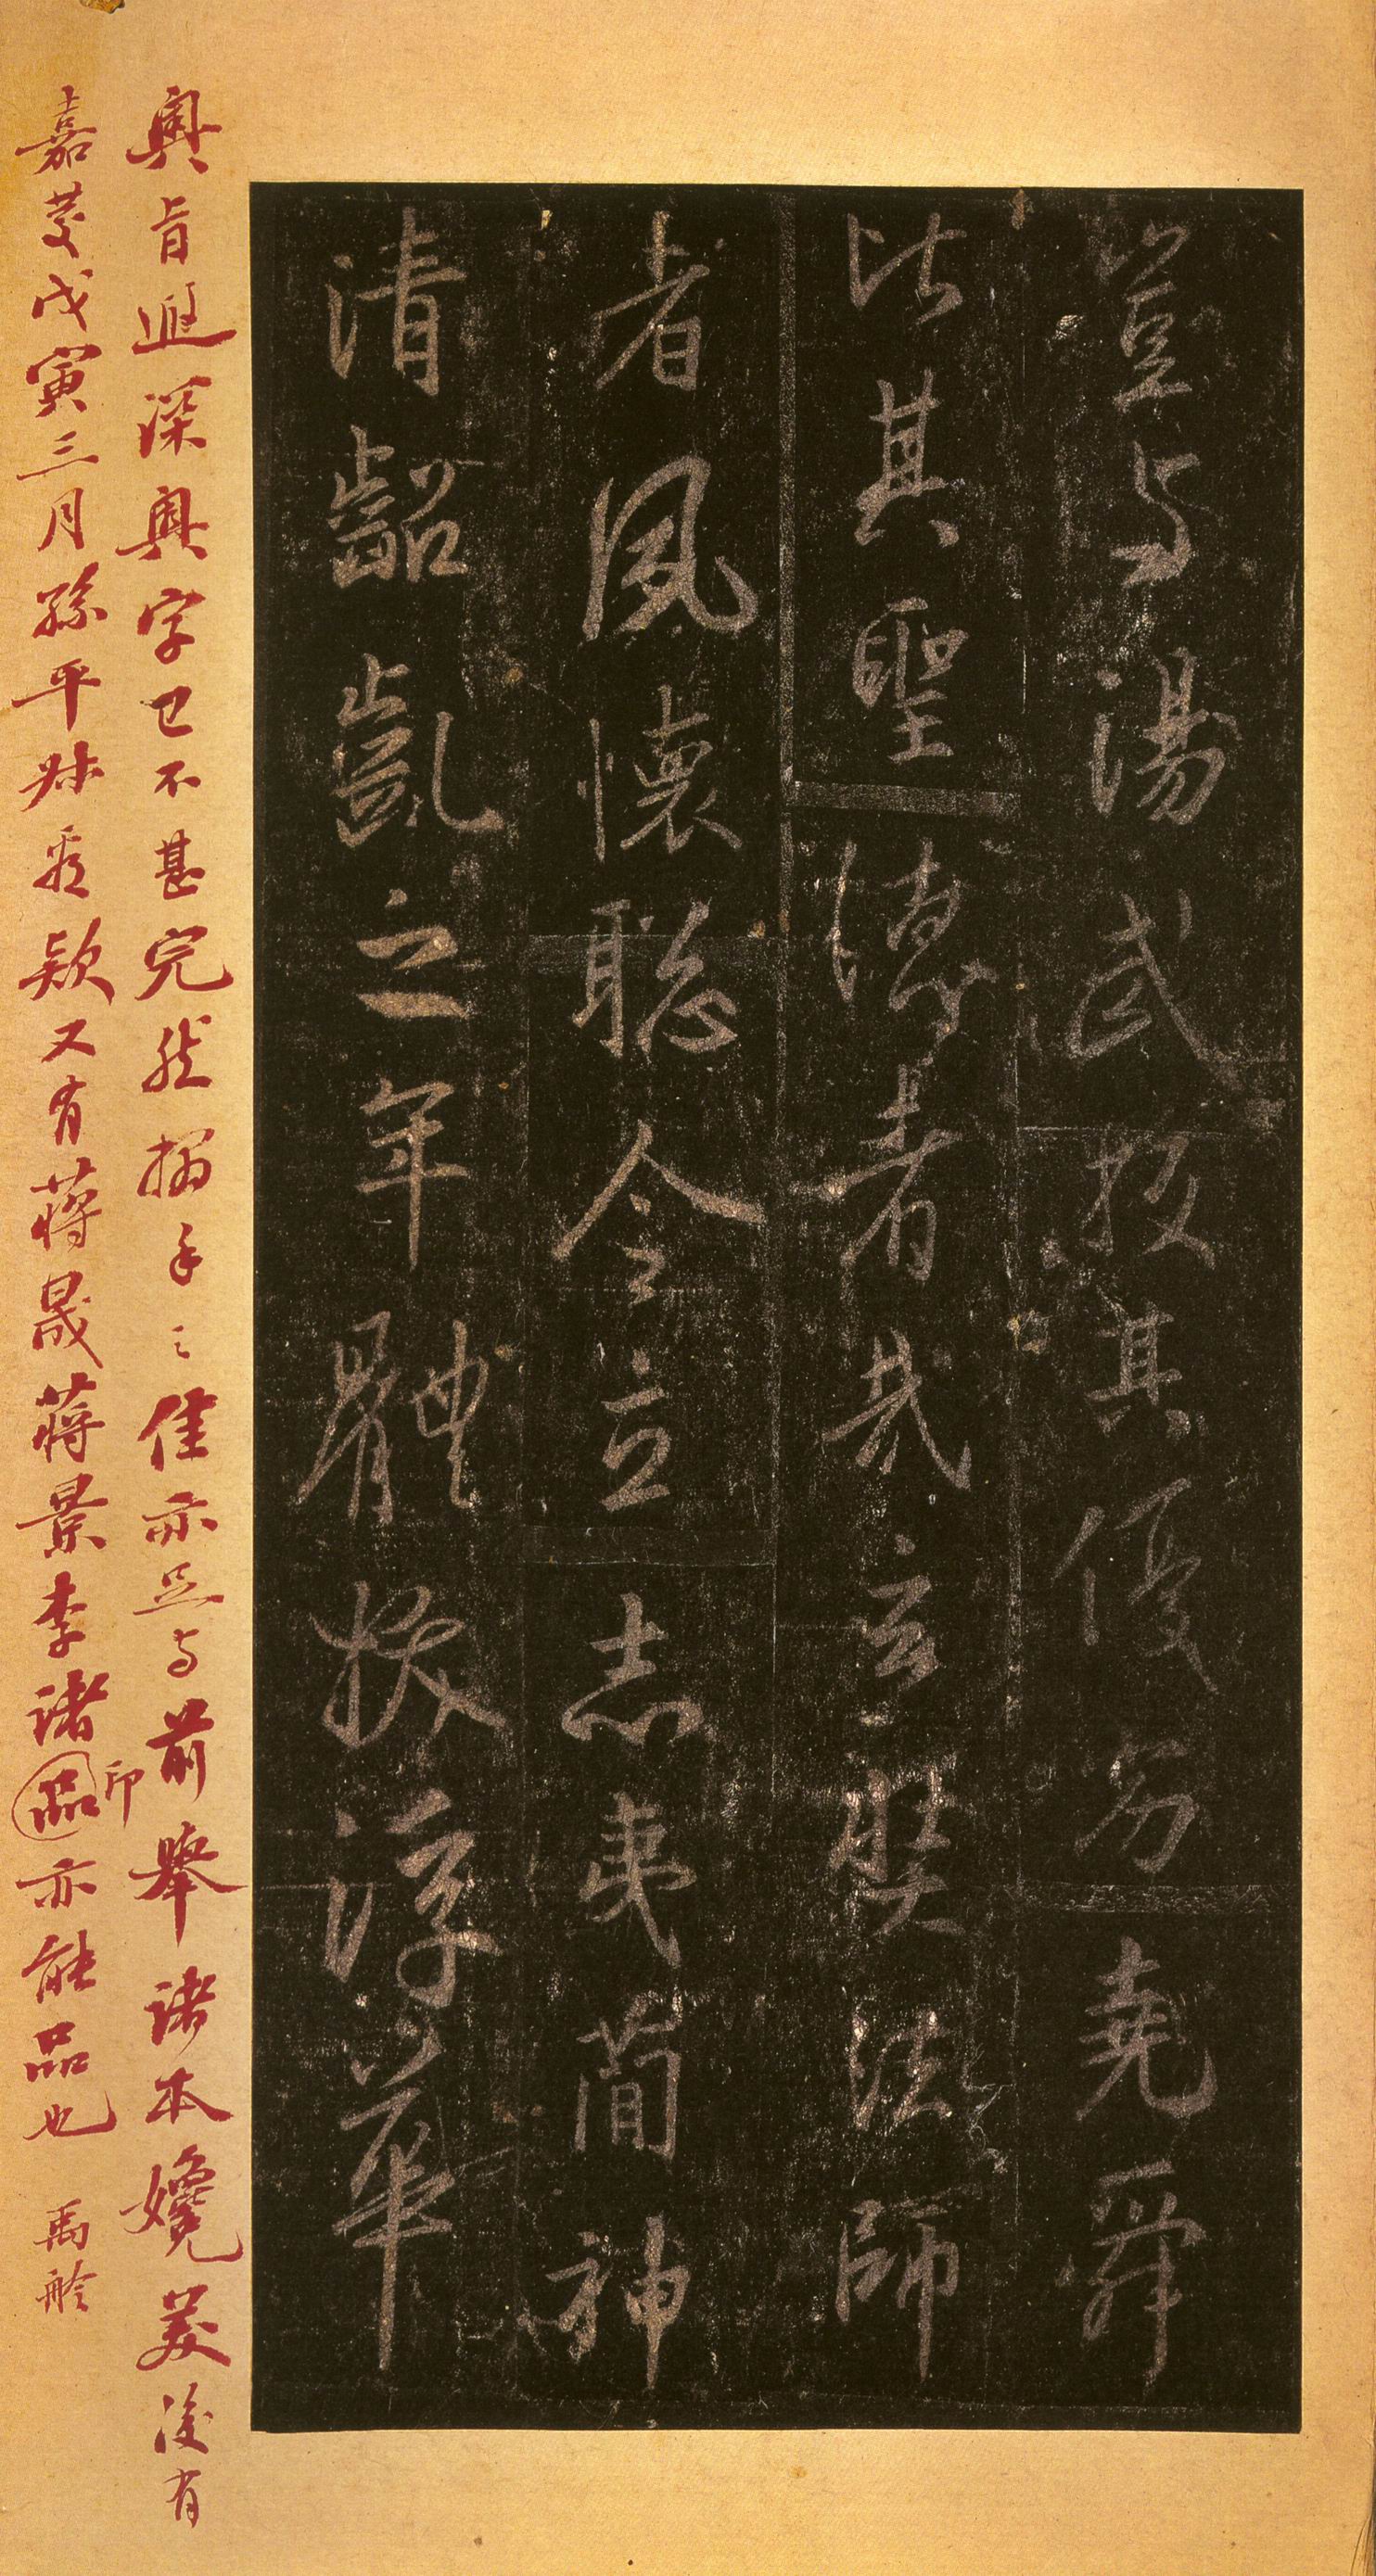 豈与湯武挍其優劣堯舜
比其聖德者哉玄奘法師
者夙懷聡令立志夷簡神
清齠齔之年體拔浮華
奧旨遐深奧字已不甚完然搨手之佳亦足与前舉諸本媲美後有
嘉慶戊寅三月孫平叔看款又有蔣晟蔣景李諸品亦能品也 禹舲
印